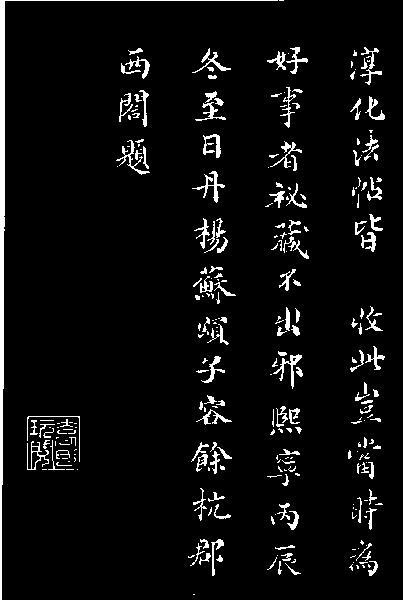 淳化法帖皆 收此豈當時為
好事者祕藏不出邪熙寧丙辰
冬至日丹楊蘇頌子容餘杭郡
西閣題